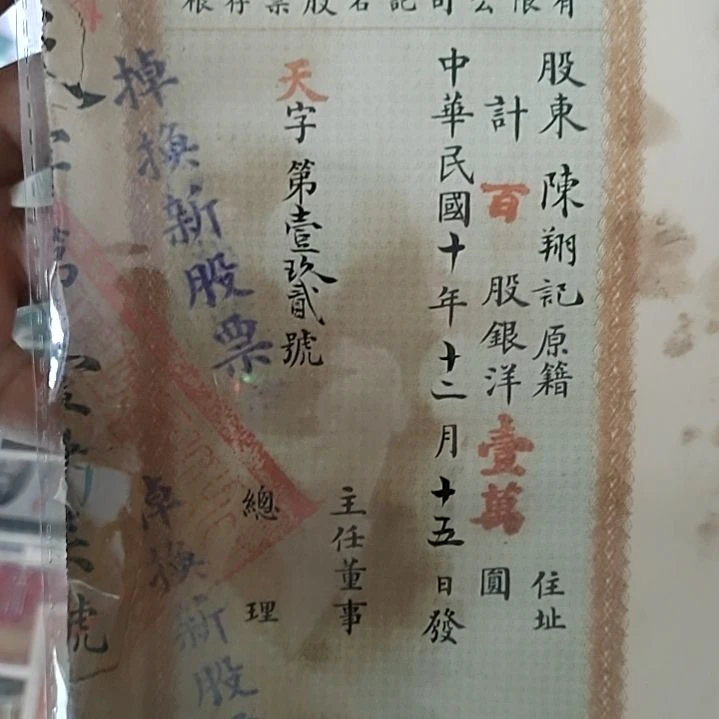 有限公司記名股票存根
股東 陳翔記 原籍 住址
計百股銀洋壹萬圓
中華民國十年十二月十五日發
主任董事
天字第壹玖貳號
總理
掉換新股票
掉換新股
號